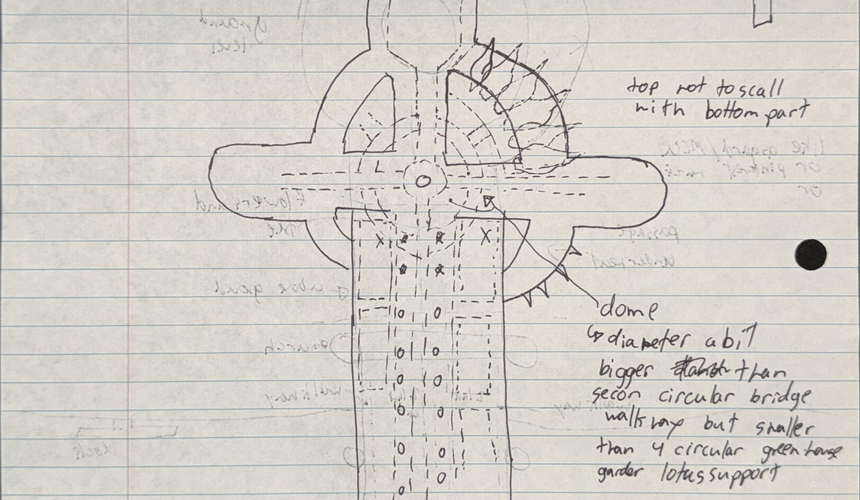 top not to scall
with bottom part
dome
↳ diameter a bit
bigger than
secon circular bridge
walkway but smaller
than 4 circular greenhouse
garder lotus support
X
X